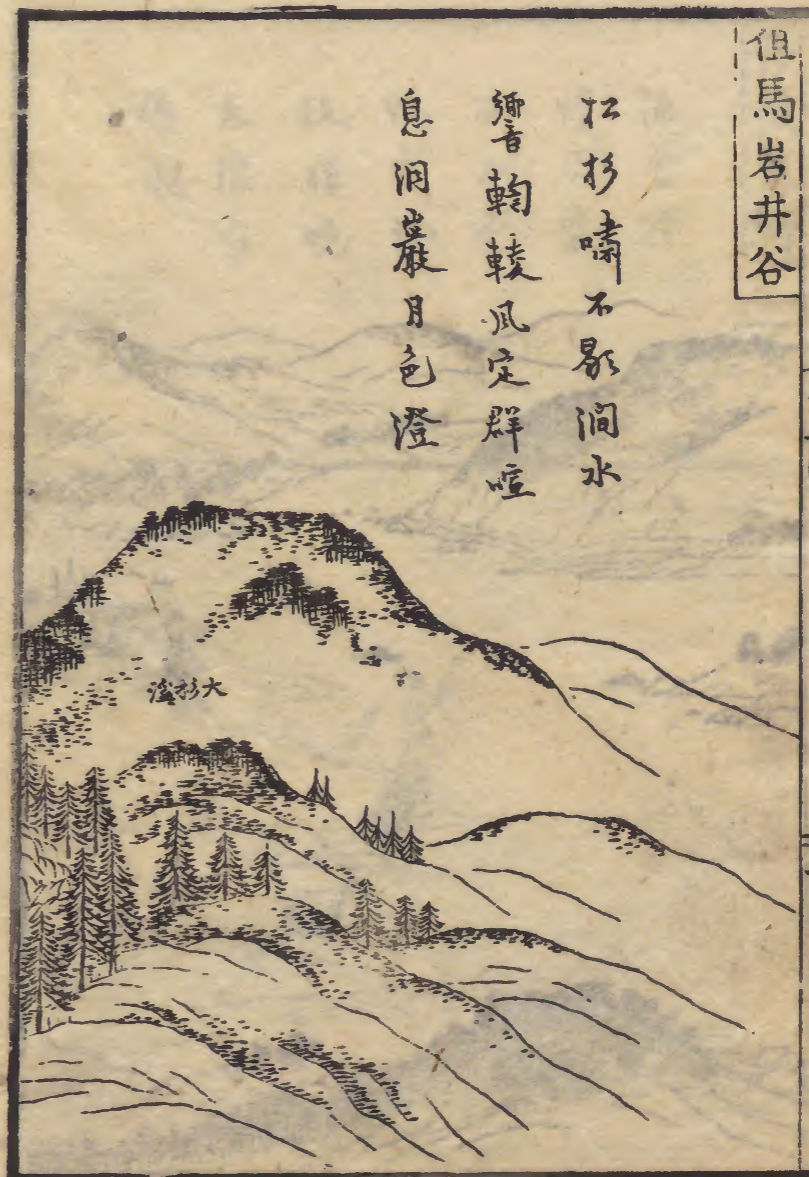 但馬岩井谷
松杉嘯不歇澗水
響輷輘風定群喧
息洞巖月色澄
大杉溢